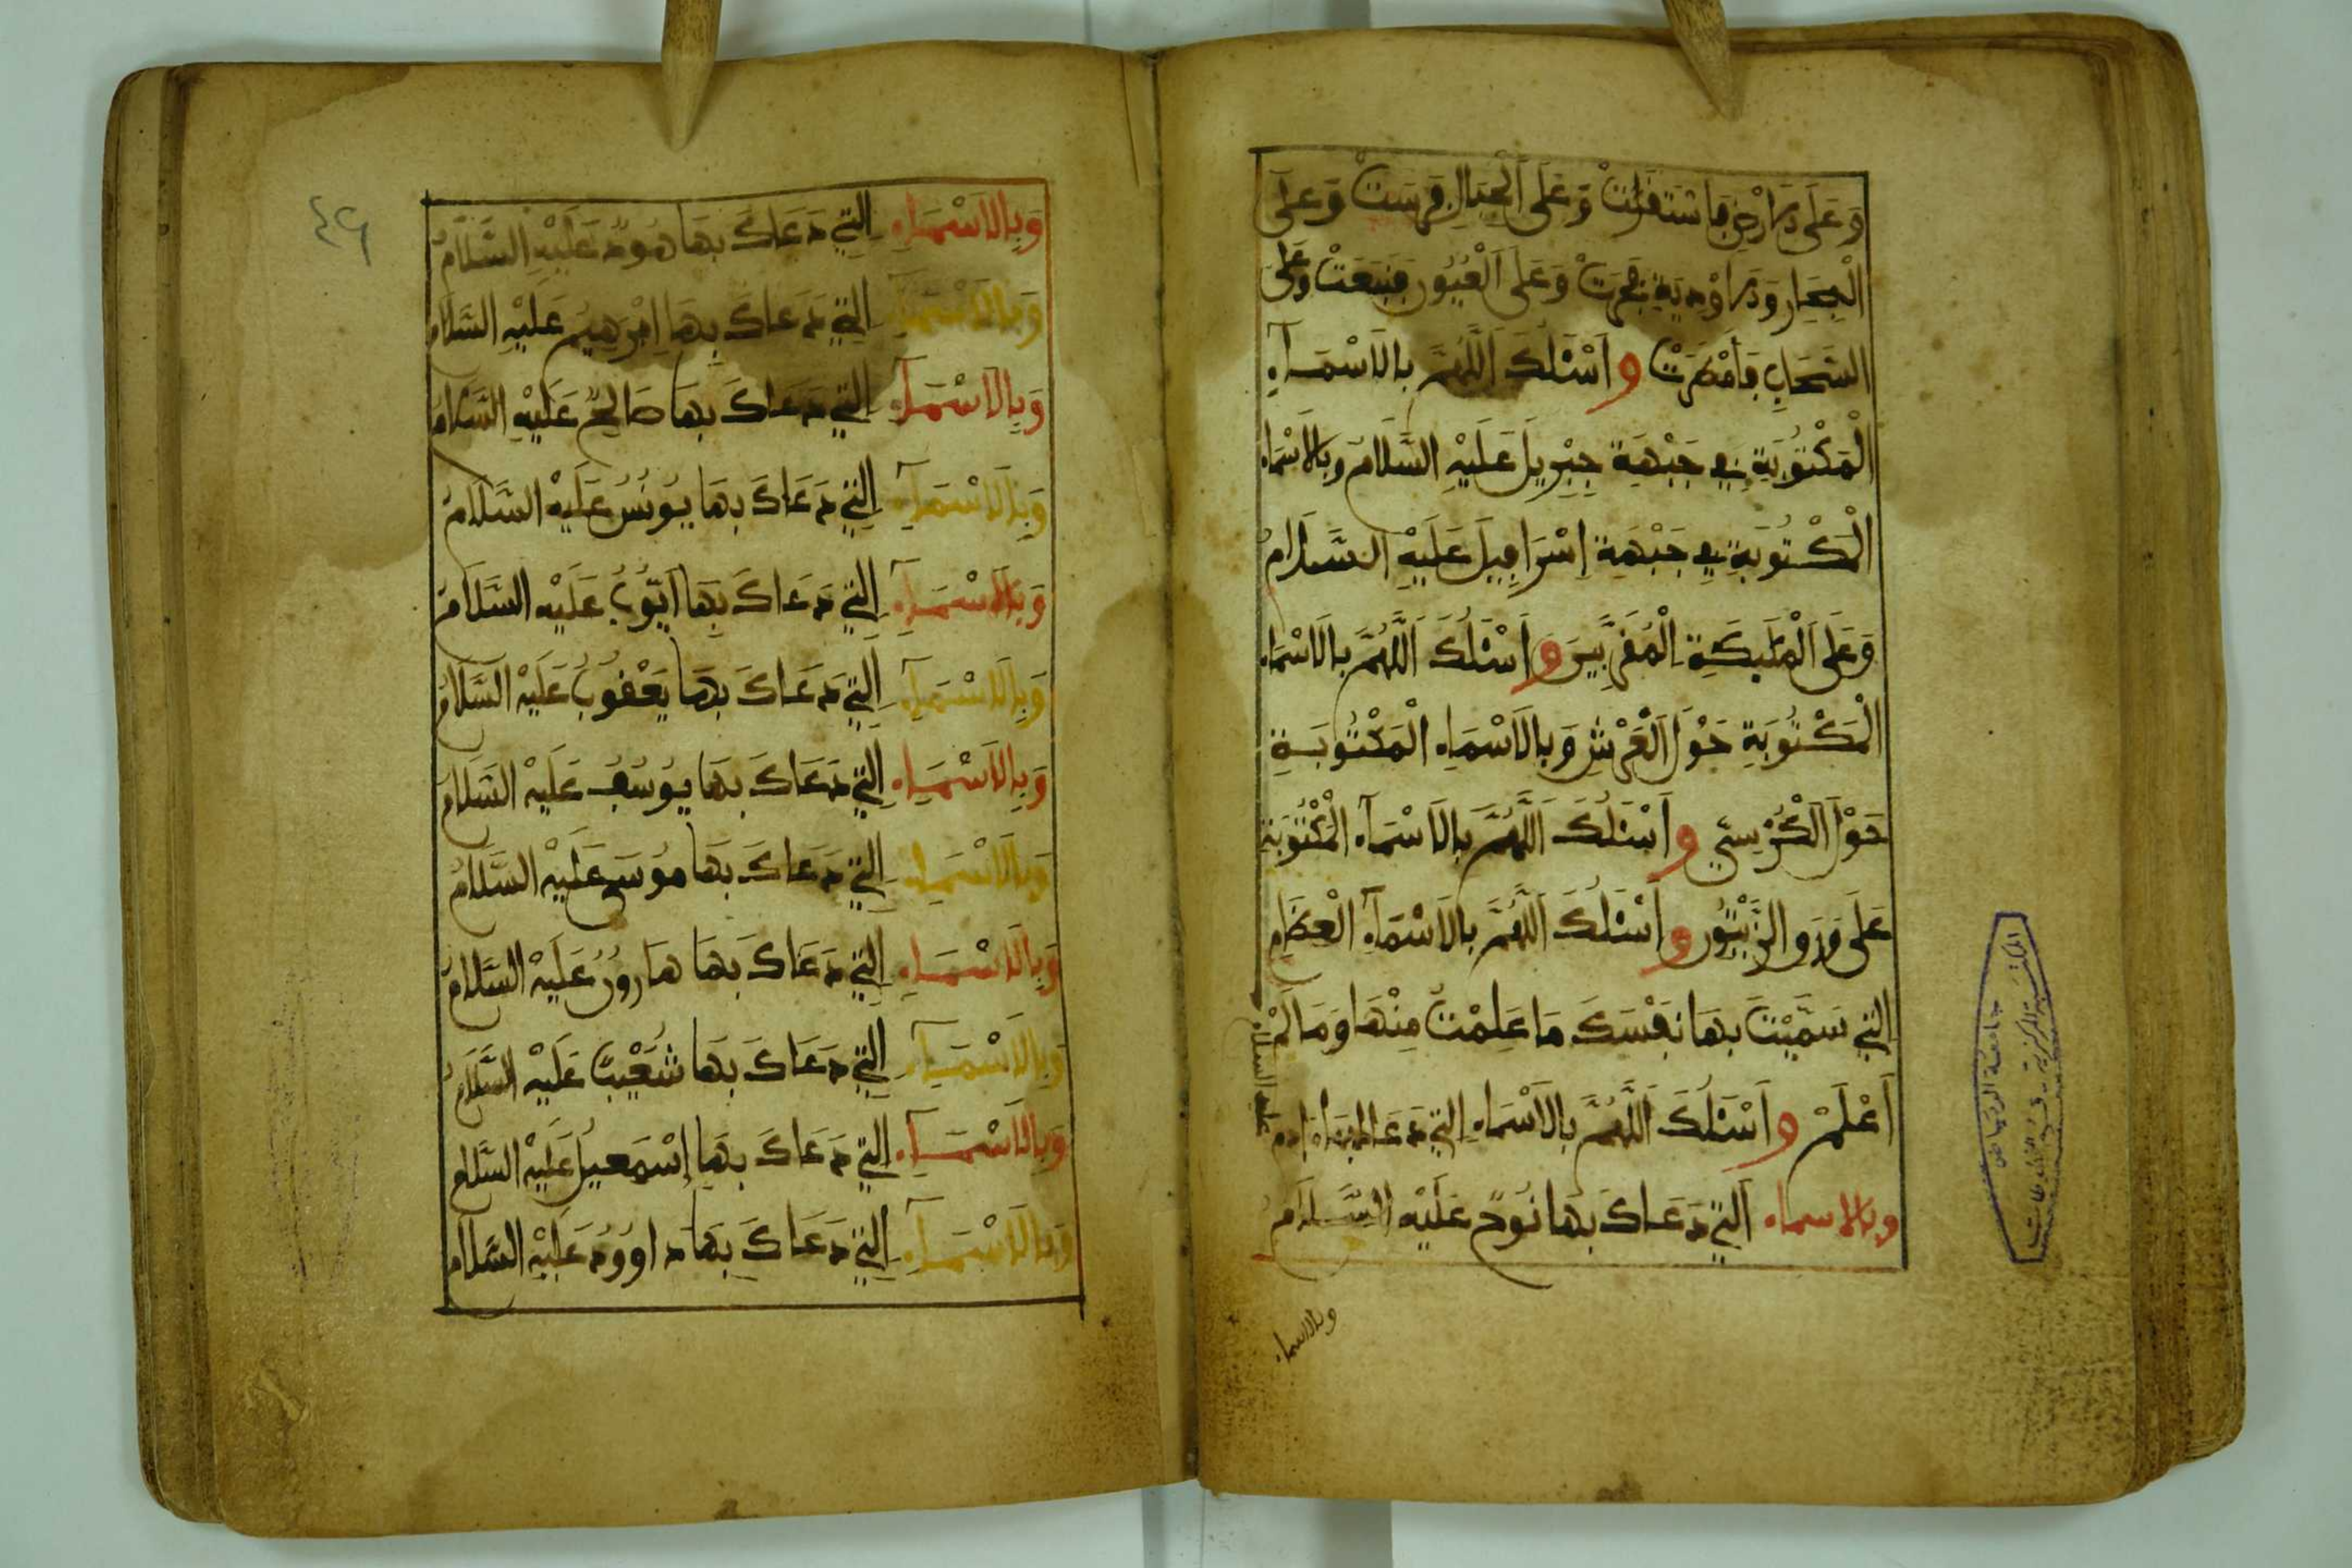 وَعَلَى الَارْضِ فَاسْتَقَرَّتْ وَعَلَى الْجِبَالِ فَرَسَتْ وَعَلَى
الْبِحَارِ وَالَاوْدِيَةِ فَجَرَتْ وَعَلَى الْعُيُونِ فَنَبَعَتْ وَعَلَى
السَّحَابِ فَأَمْطَرَتْ وَأَسْئَلُكَ اللَّهُمَّ بِالَاسْمَآءِ
الْمَكْتُوبَةِ فِي جَبْهَةِ جِبْرِيلَ عَلَيْهِ السَّلَامُ وَبِالَاسْمَاءِ
الْمَكْتُوبَةِ فِي جَبْهَةِ إِسْرَافِيلَ عَلَيْهِ السَّلَامُ
وَعَلَى الْمَلَئِكَةِ الْمُقَرَّبِينَ وَأَسْئَلُكَ اللَّهُمَّ بِالَاسْمَاءِ
الْمَكْتُوبَةِ حَوْلَ الْعَرْشِ وَبِالَاسْمَاءِ الْمَكْتُوبَةِ
حَوْلَ الْكُرْسِيِّ وَأَسْئَلُكَ اللَّهُمَّ بِالَاسْمَآءِ الْمَكْتُوبَةِ
عَلَى وَرَقِ الزَّيْتُونِ وَأَسْئَلُكَ اللَّهُمَّ بِالَاسْمَآءِ الْعِظَامِ
الَّتِي سَمَّيْتَ بِهَا نَفْسَكَ مَا عَلِمْتُ مِنْهَا وَمَا لَمْ
أَعْلَمْ وَأَسْئَلُكَ اللَّهُمَّ بِالَاسْمَاءِ الَّتِي دَعَاكَ بِهَا ءَادَمُ
عليه السلام
وبالاسماء الَّتِي دَعَاكَ بِهَا نُوحٌ عَلَيْهِ السَّلَامُ
وبالاسماء
المكتبة المركزية - قسم المخطوطات
جامعة الرياض
٤٩
وَبِالَاسْمَاءِ الَّتِي دَعَاكَ بِهَا هُودٌ عَلَيْهِ السَّلَامُ
وَبِالَاسْمَاءِ الَّتِي دَعَاكَ بِهَا اِبْرَهِيمُ عَلَيْهِ السَّلَامُ
وَبِالَاسْمَآءِ الَّتِي دَعَاكَ بِهَا صَالِحٌ عَلَيْهِ السَّلَامُ
وَبِالَاسْمَآءِ الَّتِي دَعَاكَ بِهَا يُونُسُ عَلَيْهِ السَّلَامُ
وَبِالَاسْمَآءِ الَّتِي دَعَاكَ بِهَا اَيُّوبُ عَلَيْهِ السَّلَامُ
وَبِالَاسْمَآءِ الَّتِي دَعَاكَ بِهَا يَعْقُوبُ عَلَيْهِ السَّلَامُ
وَبِالَاسْمَاءِ الَّتِي دَعَاكَ بِهَا يُوسُفُ عَلَيْهِ السَّلَامُ
وَبِالَاسْمَاءِ الَّتِي دَعَاكَ بِهَا مُوسَى عَلَيْهِ السَّلَامُ
وَبِالَاسْمَاءِ الَّتِي دَعَاكَ بِهَا هَارُونُ عَلَيْهِ السَّلَامُ
وَبِالَاسْمَآءِ الَّتِي دَعَاكَ بِهَا شُعَيْبٌ عَلَيْهِ السَّلَامُ
وَبِالَاسْمَآءِ الَّتِي دَعَاكَ بِهَا إِسْمَعِيلُ عَلَيْهِ السَّلَامُ
وَبِالَاسْمَآءِ الَّتِي دَعَاكَ بِهَا دَاوُودُ عَلَيْهِ السَّلَامُ